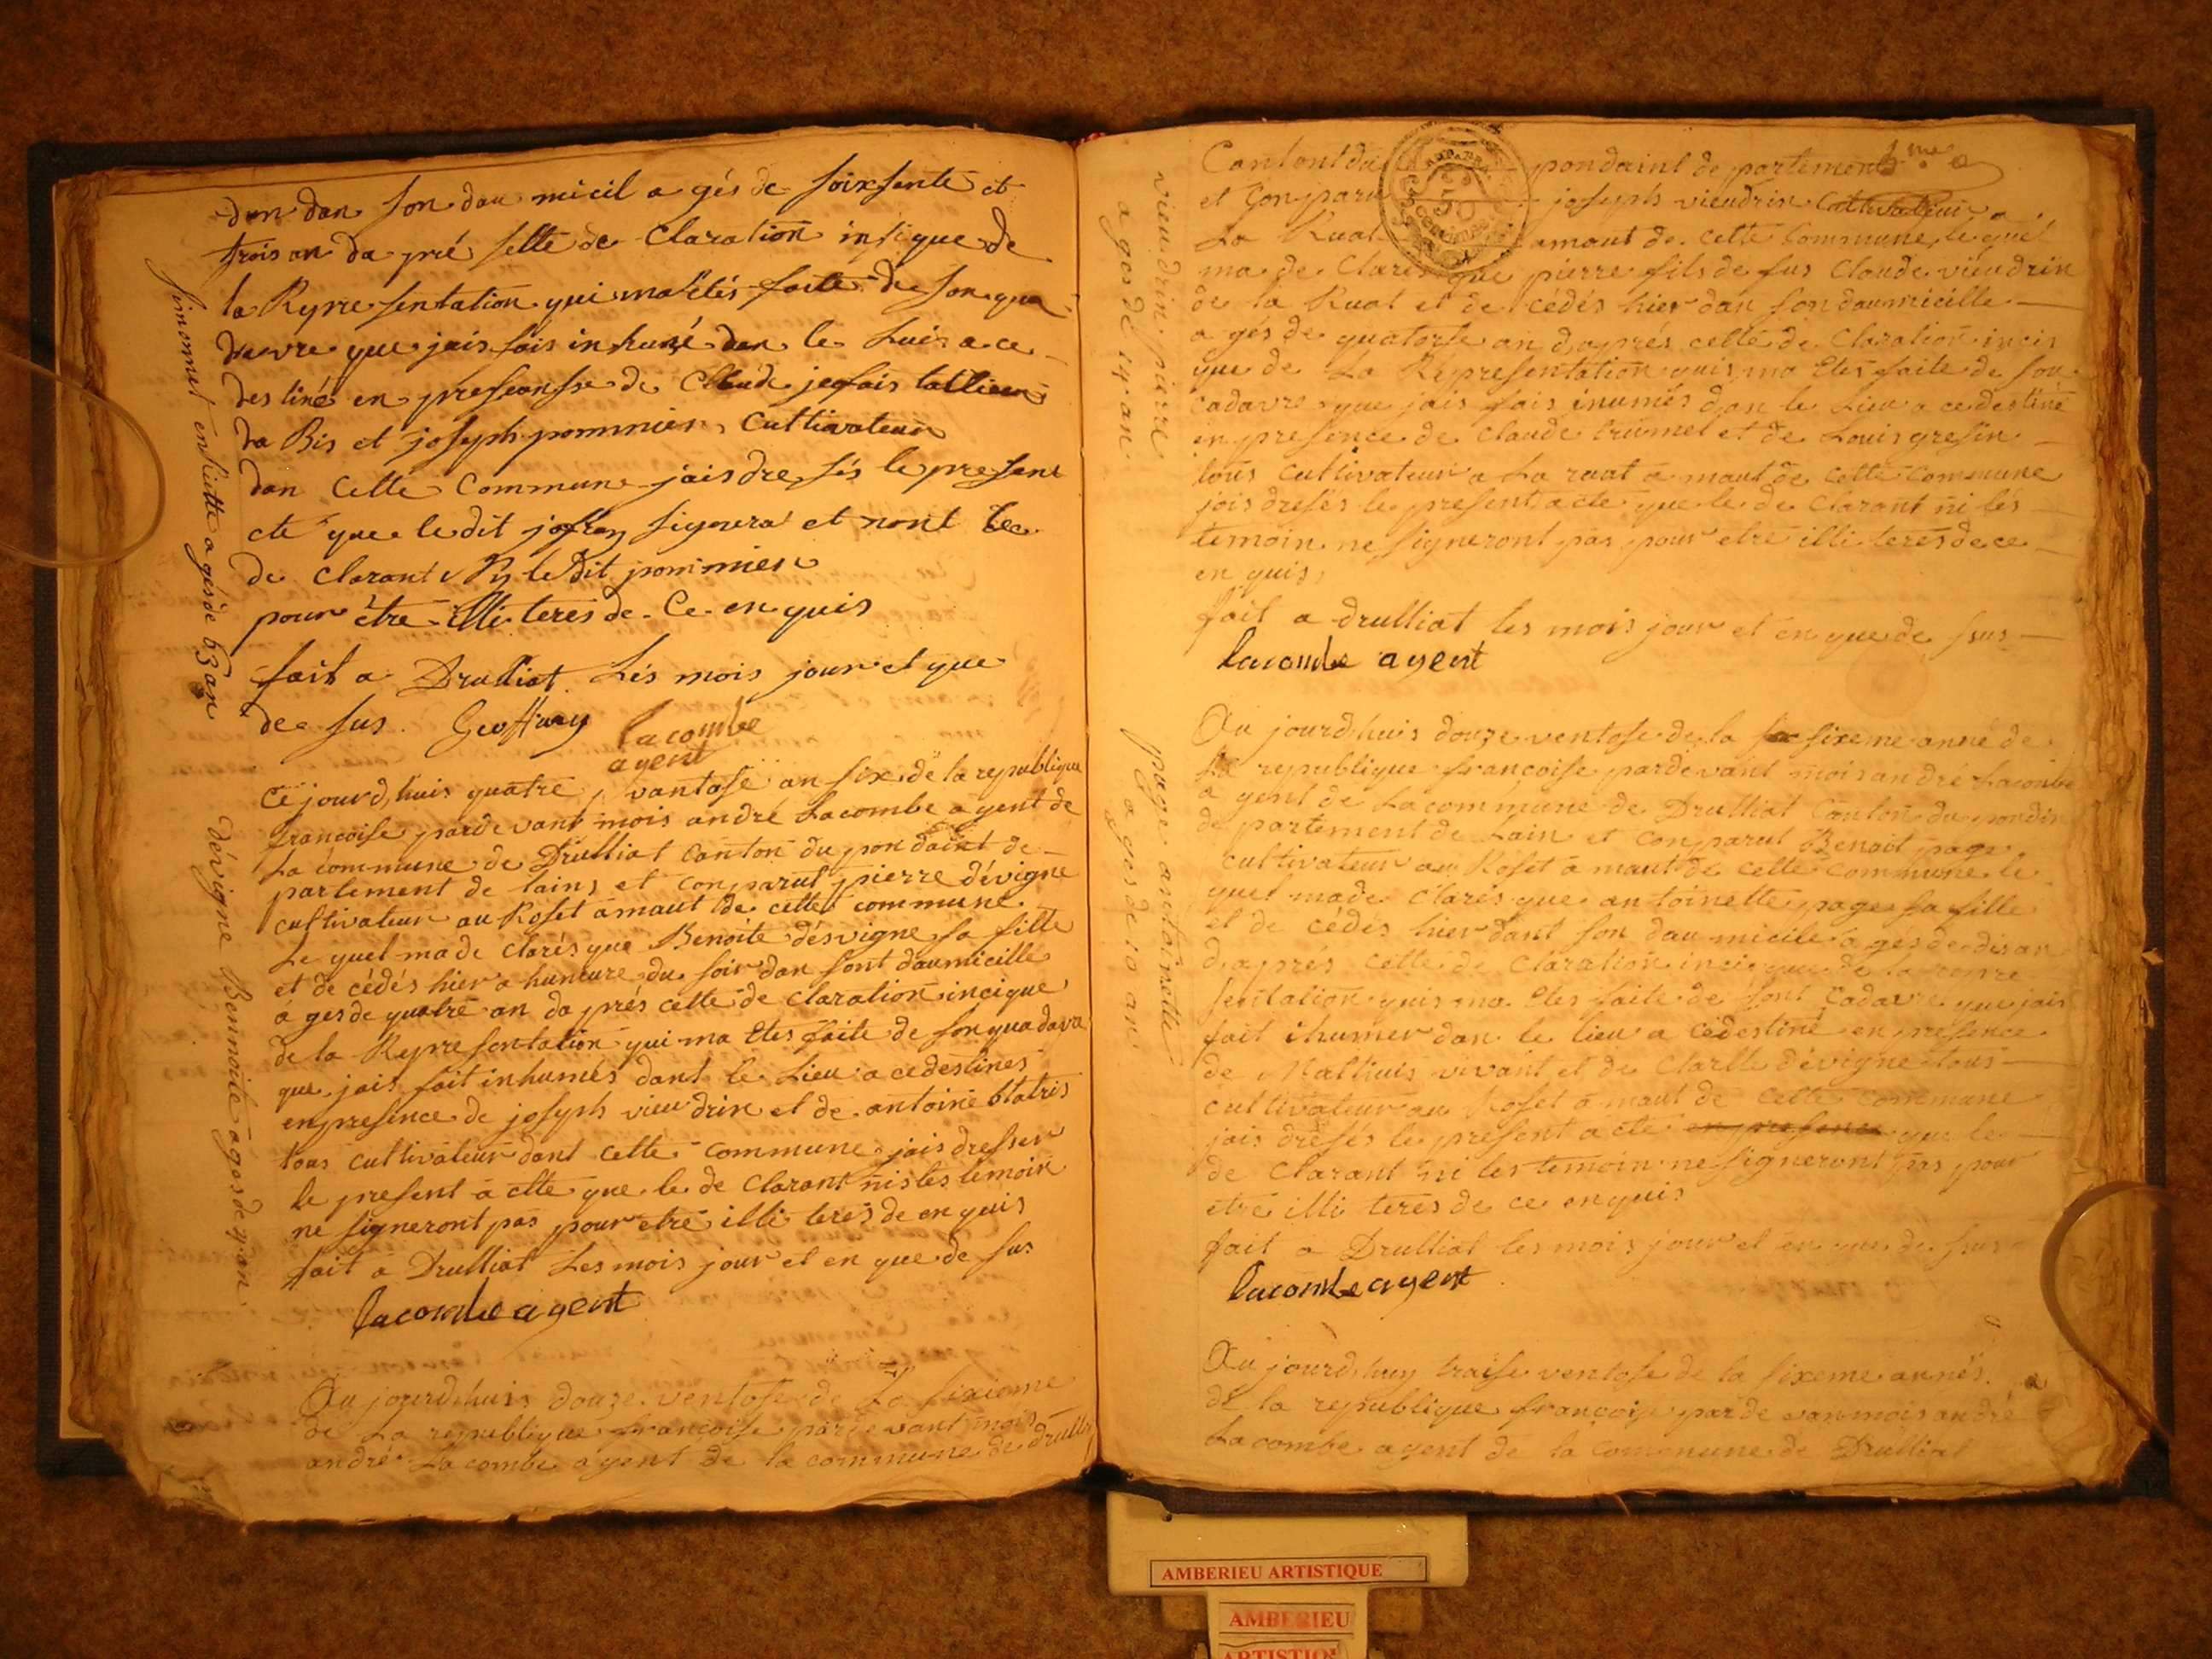 dan son dau micil a gés de soixsente et
trois an da pré sette de Claration insique de
la Reyresentation qui ma étés faite de son qua
davre que jais fais inhumé dan le Luis a ce
destiné en preseansse de Claude jeofrais tallieur
da Bis et joseph pommier, Cultivateur
dan Cette Commune jais dressés le present
cte que le dit jofray signera et nont le
de Clarant Ny le dit pommier
pour étre illiteres de Ce en quis
fait a Drulliat Lés mois jour et que
de sus Geoffray lacombe
agent
simomet ensiette agésde 63 an
Ce jourd,huis quatre vantose an six de la republique
francoise parde vant mois andré Lacombe agent de
La Commune de Drulliat Canton du pon daint de
partement de lains et Conparut pierre dévigne
cultivateur au Roset a maut de cette commune
Le quel ma de Clarés que Benoite désvigne sa fille
et de cédés hier a hunteure du soir dan sont daumicille
a ges de quatre an da prés cette de claration incique
de la Reyresentation qui ma Etes faite de son quadavre
que jais fait inhumés dant le Lieu a cedestines
en presence de joseph vieudrin et de antoine blatris
tous cultivateur dant cette commune jais dresser
le present a cte que le de Clarant nis les temoin
ne signeront pas pour etre illi teres de en quis
fait a Drulliat Les mois jour et en que de sus
lacombe agent
dévigne Bennoite agesde 4 an
Au jourdhuis douze ventose de La sixieme
de La republique francoise parde vant mois
andré Lacombe agent de la commune de drulliat
Canton du pondaint de partement
et Conparu joseph vieudrin Cultivateur a
La Ruat amaut de cette Commune le quel
ma de Clarés que pierre fils de fus Claude vieudrin
de la Ruat et de cédés hier dan son daumicille
a gés de quatorse an d,aprés cette de Claration incis
que de La Representation quis ma Etes faite de son
cadavre que jais fais inumés dan le Lieu a ce destiné
en presence de Claude trumel et de Louis gresin
tous cultivateur a La ruat a maut de cette commune
jais dresés le present acte que le de Clarant ni les
temoin ne signeront pas pour etre illi teres de ce
en quis,
fait a drulliat les mois jour et en que de sus
lacombe agent
vieudrin pierre
a ges de 14 an
Au jourdhuis douze ventose de la sixeme anné de
La republique francoise pardevant mois andré Lacombe
a gent de La commune de Drulliat Canton du pondin
de partement de Lain et Conparut Benoit page
cultivateur au Roset a maut de cette commune le
quel ma de Clarés que antoinette page sa fille
et de cédés hier dant son daumicile a gés de dis an
d,apres cette de Claration incique de la repre
sentation quis ma Etes faite de sont Cadavre que jais
fait ihumer dan le lieu a cedestiné en presence
de Matliuis vivant et de Clarlle dévigne tous
cultivateur au Roset a maut de Cette commune
jais dresés le present acte en presence que le
de Clarant ni les temoin ne signeront pas pour
etre illi teres de ce en quis
fait a Drulliat les mois jour et en que de sus
lacombe agent
page antoinette
a ges de 10 an
Au jourd,huy traise ventose de la sixeme annés
de la republique francoise par de van mois andré
Lacombe agent de la commune de Drulliat
AMBERIEU ARTISTIQUE
AMBERIEU
ARTISTIQUE